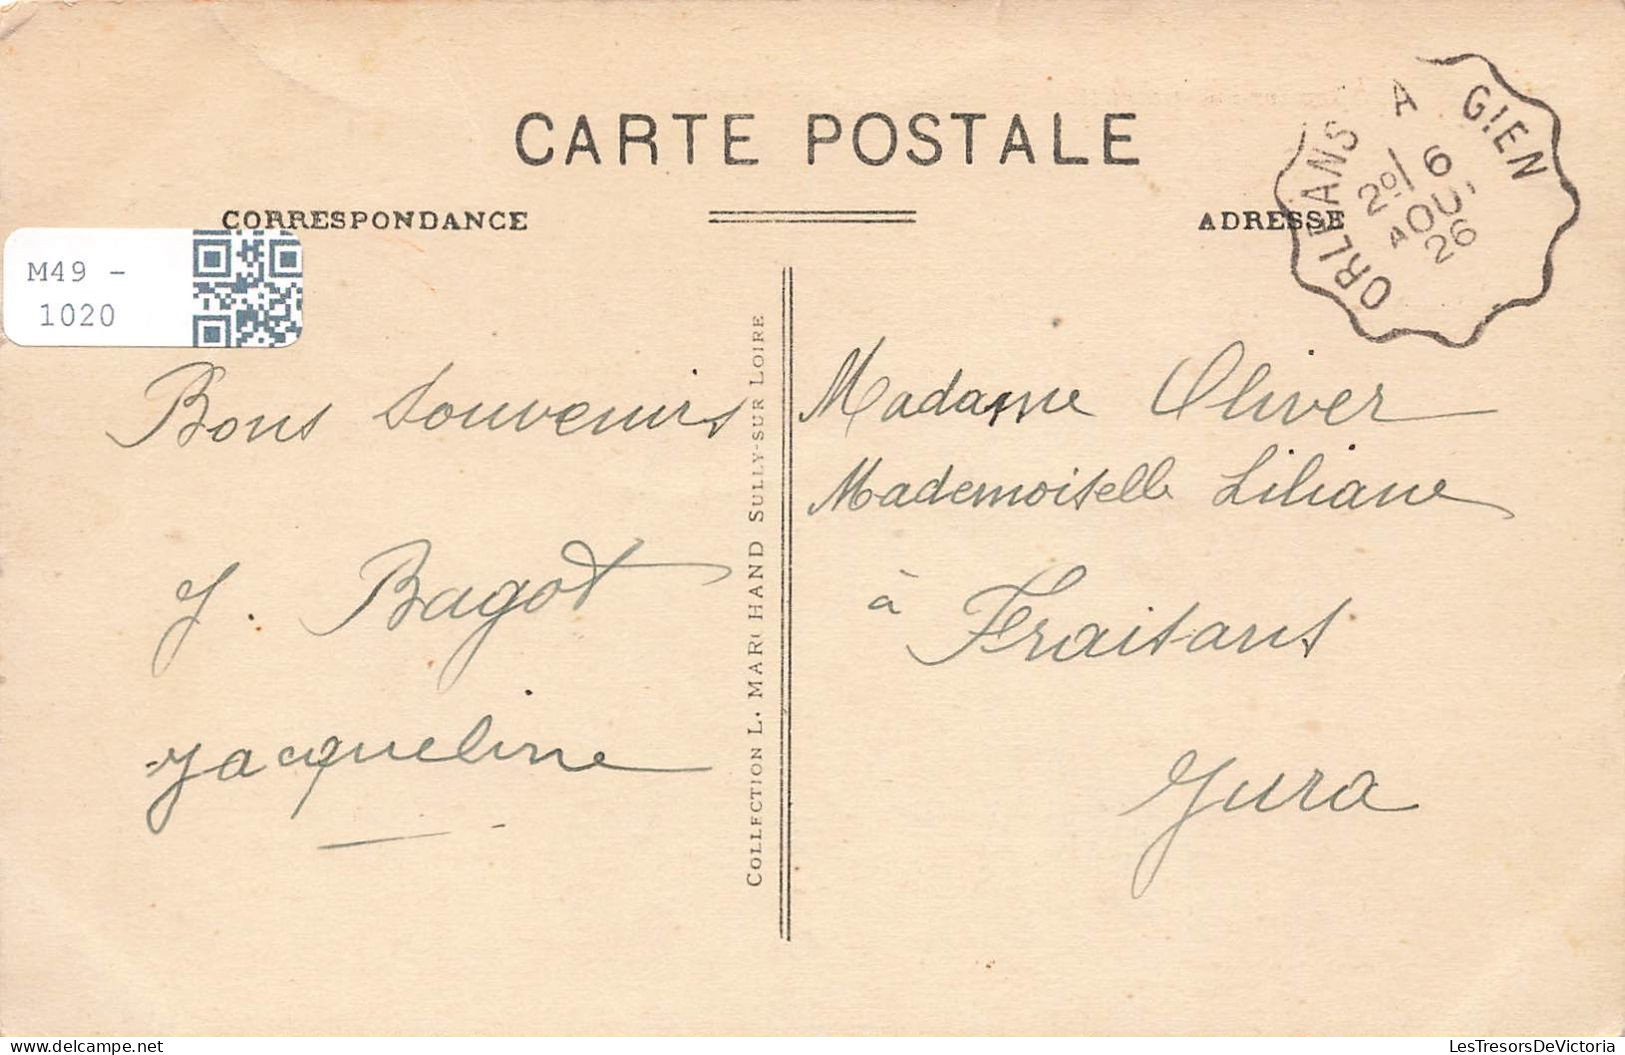 CARTE POSTALE
CORRESPONDANCE
ADRESSE
ORLEANS A GIEN
2º/ 6
AOU
26
M49 -
1020
Bons Souvenirs
J. Bagot
Jacqueline
COLLECTION L. MARCHAND SULLY-SUR LOIRE
Madame Oliver
Mademoiselle Liliane
à Fraisans
Jura
delcampe.net
LesTresorsDeVictoria